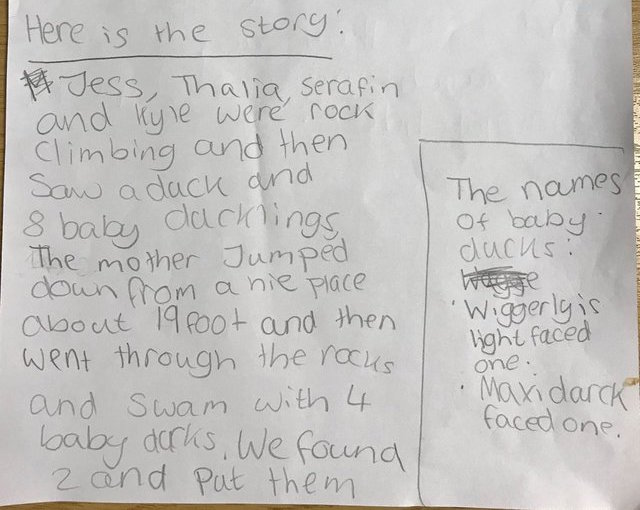 Here is the story:
Jess, Thalia, serafin
and Kyle were rock
climbing and then
saw a duck and
8 baby ducklings
The mother Jumped
down from a hie place
about 19 foot and then
went through the rocks
and swam with 4
baby dcrks. We found
2 and put them
The names
of baby
ducks:
Wiggerly is
light faced
one.
Maxi darck
faced one.